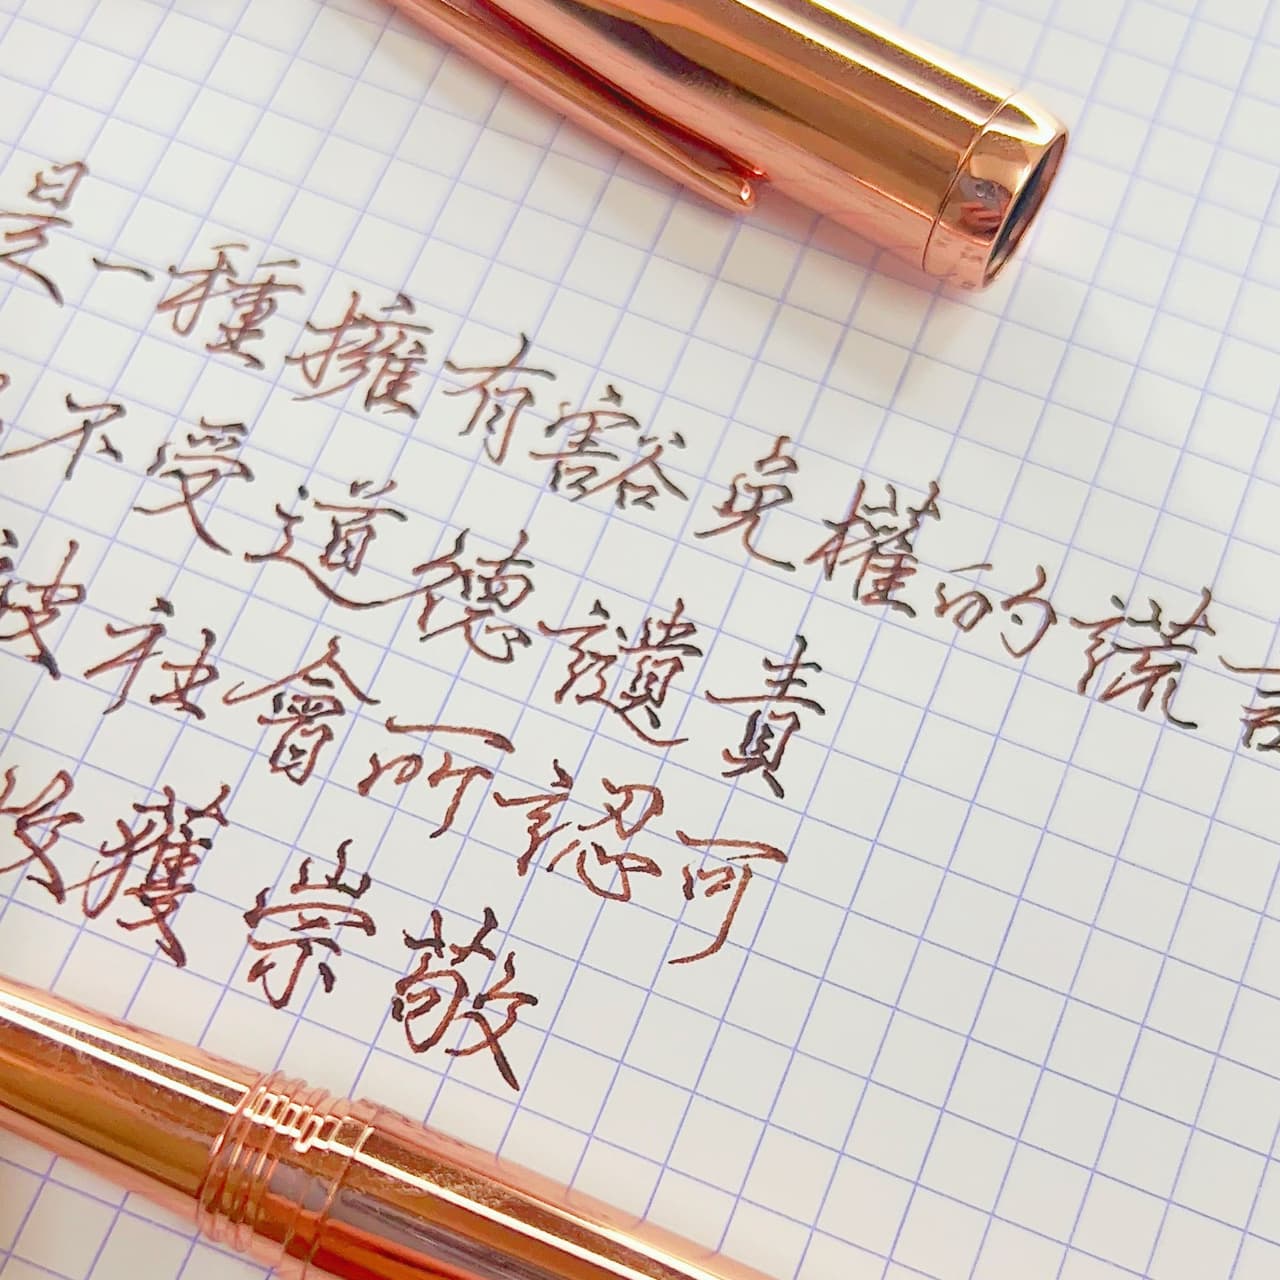 是一種擁有豁免權的謊言
不受道德譴責
被社會所認可
收獲崇敬